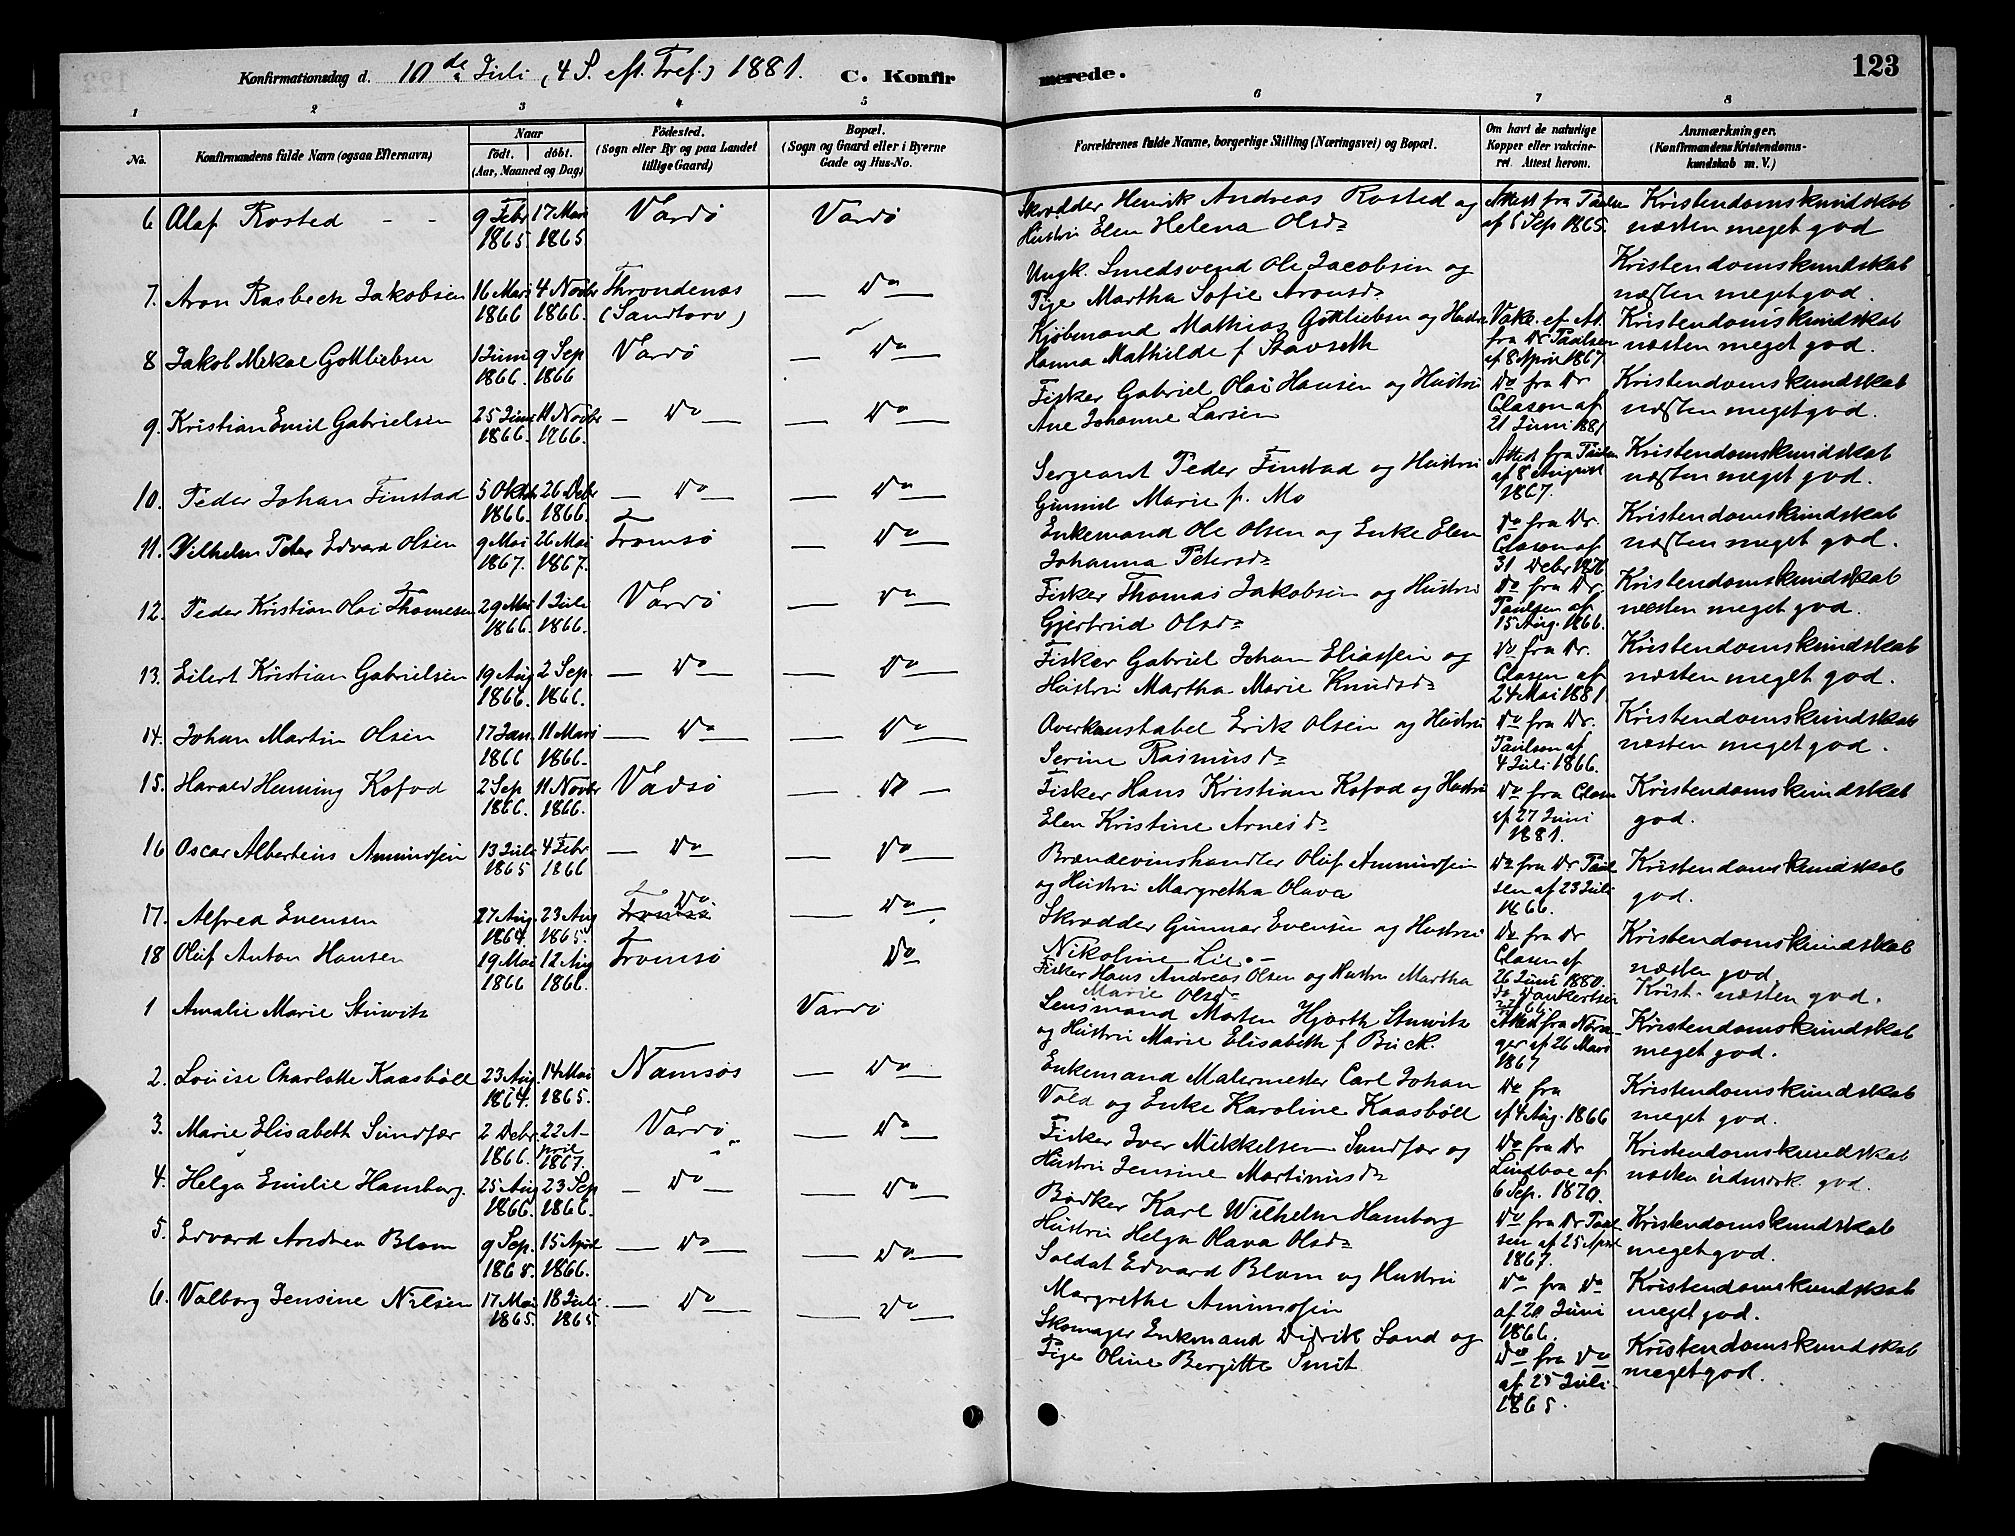 Konfirmationsdag d. 10de Juli (4 S. eft. Tref.) 1881. C. Konfir merede. 123
1 2 3 4 5 6 7 8
No. Konfirmandens fulde Navn (ogsaa Efternavn) Naar födt. döbt. (Aar, Maaned og Dag) Födested. (Sogn eller By og paa Landet tillige Gaard) Bopæl. (Sogn og Gaard eller i Byerne Gade og Hus-No. Forældrenes fulde Navne, borgerlige Stilling (Næringsvei) og Bopæl. Om havt de naturlige Kopper eller vakcineret. Attest herom. Anmærkninger. (Konfirmandens Kristendomskundskab m. V.)
6 Olaf Rosted - - 9 Febr 1865 17 Mai 1865 Vardö Vardö Skrædder Henrik Andreas Rosted og Hustru Elen Helena Olsd. Attest fra Paulsen af 5 Sep 1865. Kristendomskundskab næsten meget god
7. Aron Rasbech Jakobsen 16 Mars 1866 4 Novbr 1866. Throndenæs (Sandtorv) Do Ungk. Smedsvend Ole Jacobsen og Pige Martha Sofie Aronsd. Kristendomskundskab næsten meget god.
8 Jakob Mekal Gottliebsen 1 Juni 1866. 9 Sep 1866 Vardö Do Kjöbmand Mathias Gottliebsen og Hustru Hanna Mathilde f Stavseth Vakc. ef. At. fra Dr Paulsen af 8 April 1867 Kristendomskundskab næsten meget god.
9. Kristian Emil Gabrielsen 25 Juni 1866. 11 Novbr 1866. Do Do Fisker Gabriel Olai Hansen og Hustru Ane Johanne Larsen Do fra Dr Clasen af 21 Juni 1881 Kristendomskundskab næsten meget god.
10. Peder Johan Finstad 5 Oktb 1866. 26 Debr 1866. Do Do Sergeant Peder Finstad og Hustru Gunnil Marie f. Mo Attest fra Paulsen af 8 August 1867. Kristendomskundskab næsten meget god.
11. Vilhelm Peter Edvard Olsen 9 Mai 1867. 26 Mai 1867. Tromsö Do Enkemand Ole Olsen og Enke Elen Johanna Petersd. Do fra Dr. Clasen af 31 Debr Kristendomskundskab næsten meget god.
12. Peder Kristian Olai Thomesen 29 Mai 1866. 1 Juli 1866. Vardö Do Fisker Thomas Jakobsen og Hustru Gjertrud Olsd. Do fra Dr. Paulsen af 15 Aug. 1866. Kristendomskundskab næsten meget god.
13. Eilert Kristian Gabrielsen 19 Aug 1866. 2 Sep. 1866. Do Do Fisker Gabriel Johan Eliassen og Hustru Martha Marie Knudsd. Do fra Dr. Clasen af 24 Mai 1881. Kristendomskundskab næsten meget god.
14. Johan Martin Olsen 17 Jan. 1866 11 Mars 1866. Do Do Overkonstabel Erik Olsen og Hustru Serine Rasmusd. Do fra Dr. Paulsen af 4 Juli 1866. Kristendomskundskab næsten meget god.
15. Harald Henning Kofod 2 Sep 1866. 11 Novbr 1866. Vadsö Do Fisker Hans Kristian Kofod og Hustru Elen Kristine Arnesd. Do fra Clasen af 27 Juni 1881. Kristendomskundskab god.
16 Oscar Albertus Amundsen 13 Juli 1865 4 Febr 1866 Do Do Brændevinshandler Oluf Ammundsen og Hustru Margretha Olava Do fra Dr Paulsen af 23 Juli 1866. Kristendomskundskab god.
17. Alfred Evensen 27 Aug. 1864. 23 Aug 1865. Tromsö Do Do Skrædder Gunnar Evensen og Hustru Nikoline Lie. - Do fra Dr Clasen af 26 Juni 1880. Kristendomskundskab næsten god
18 Oluf Anton Hansen 19 Mai 1866 12 Aug 1866. Tromsö Do Fisker Hans Andreas Olsen og Hustru Martha Marie Olsd. Do Dankertsen Krist. næsten god.
1 Amalie Marie Stuwitz Vardö Lensmand Morten Hjorth Stuwitz og Hustru Marie Elisabeth f Buck. Attest fra af 26 Mars 1867 Kristendomskundskab meget god.
2. Louise Charlotte Kaasböll 23 Aug. 1864. 14 Mai 1865. Namsos Do Enkemand Malermester Carl Johan Vold og Enke Karoline Kaasböll Do fra af 4 Aug. 1866 Kristendomskundskab meget god.
3. Marie Elisabeth Sundfær 2 Debr 1866. 22 April 1867. Vardö Do Fisker Iver Mikkelsen Sundfær og Hustru Jensine Martinusd. Do fra Dr Lindboe af 6 Sep. 1870. Kristendomskundskab næsten udmærk. god.
4. Helga Emilie Hamborg. 25 Aug 1866. 23 Sep 1866. Do Do Bödker Karl Wilhelm Hamborg Hustru Helga Olava Olsd. Do fra Dr Paulsen af 25 April 1867. Kristendomskundskab meget god.
5. Edvard Andrea Blom 9 Sep. 1865. 15 April 1866. Do Do Soldat Edvard Blom og Hustru Margrethe Amundsen Do fra Do af 20 Juni 1866. Kristendomskundskab meget god.
6. Valborg Jensine Nilsen 17 Mai 1865. 18 Juli 1865 Do Do Skomager Enkemand Didrik Sand og Pige Oline Bergitte Smit. Do fra Do af 25 Juli 1865. Kristendomskundskab meget god.